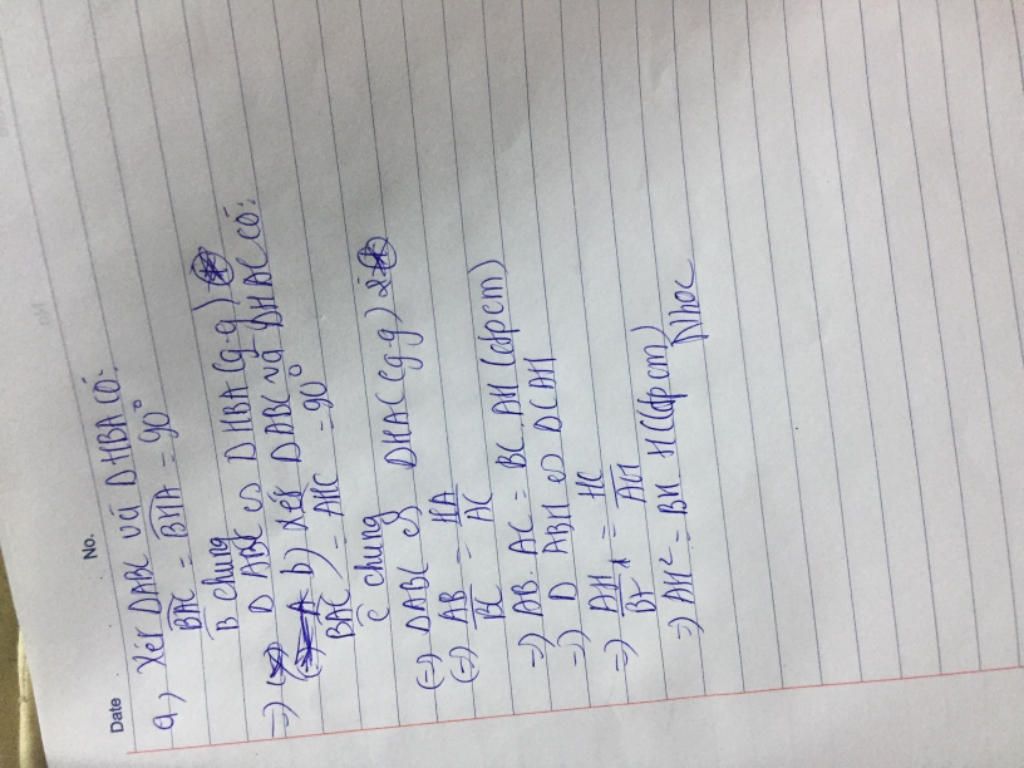 Date No.
a) Xét DABC và DHBA có:
BAC = BHA = 90°
B chung
=) D ABC ∽ DHBA (g.g) *
b) Xét DABC và DHAC có:
BAC = AHC = 90°
C chung
(=) DABC ∽ DHAC (g.g) 2*
(=) AB/BC = HA/AC
=) AB. AC = BC. AH (đpcm)
=) D ABH ∽ DCAH
=) AH/BH = HC/AH
=) AH² = BH H (đpcm)
DHOC